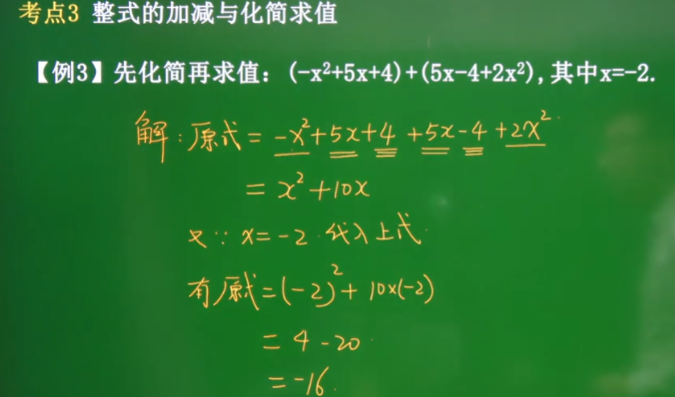 考点3 整式的加减与化简求值
【例3】先化简再求值：(-x²+5x+4)+(5x-4+2x²),其中x=-2.
解：原式=-x²+5x+4+5x-4+2x²
=x²+10x
又∵x=-2.代入上式.
有原式=(-2)²+10×(-2)
=4-20.
=-16.